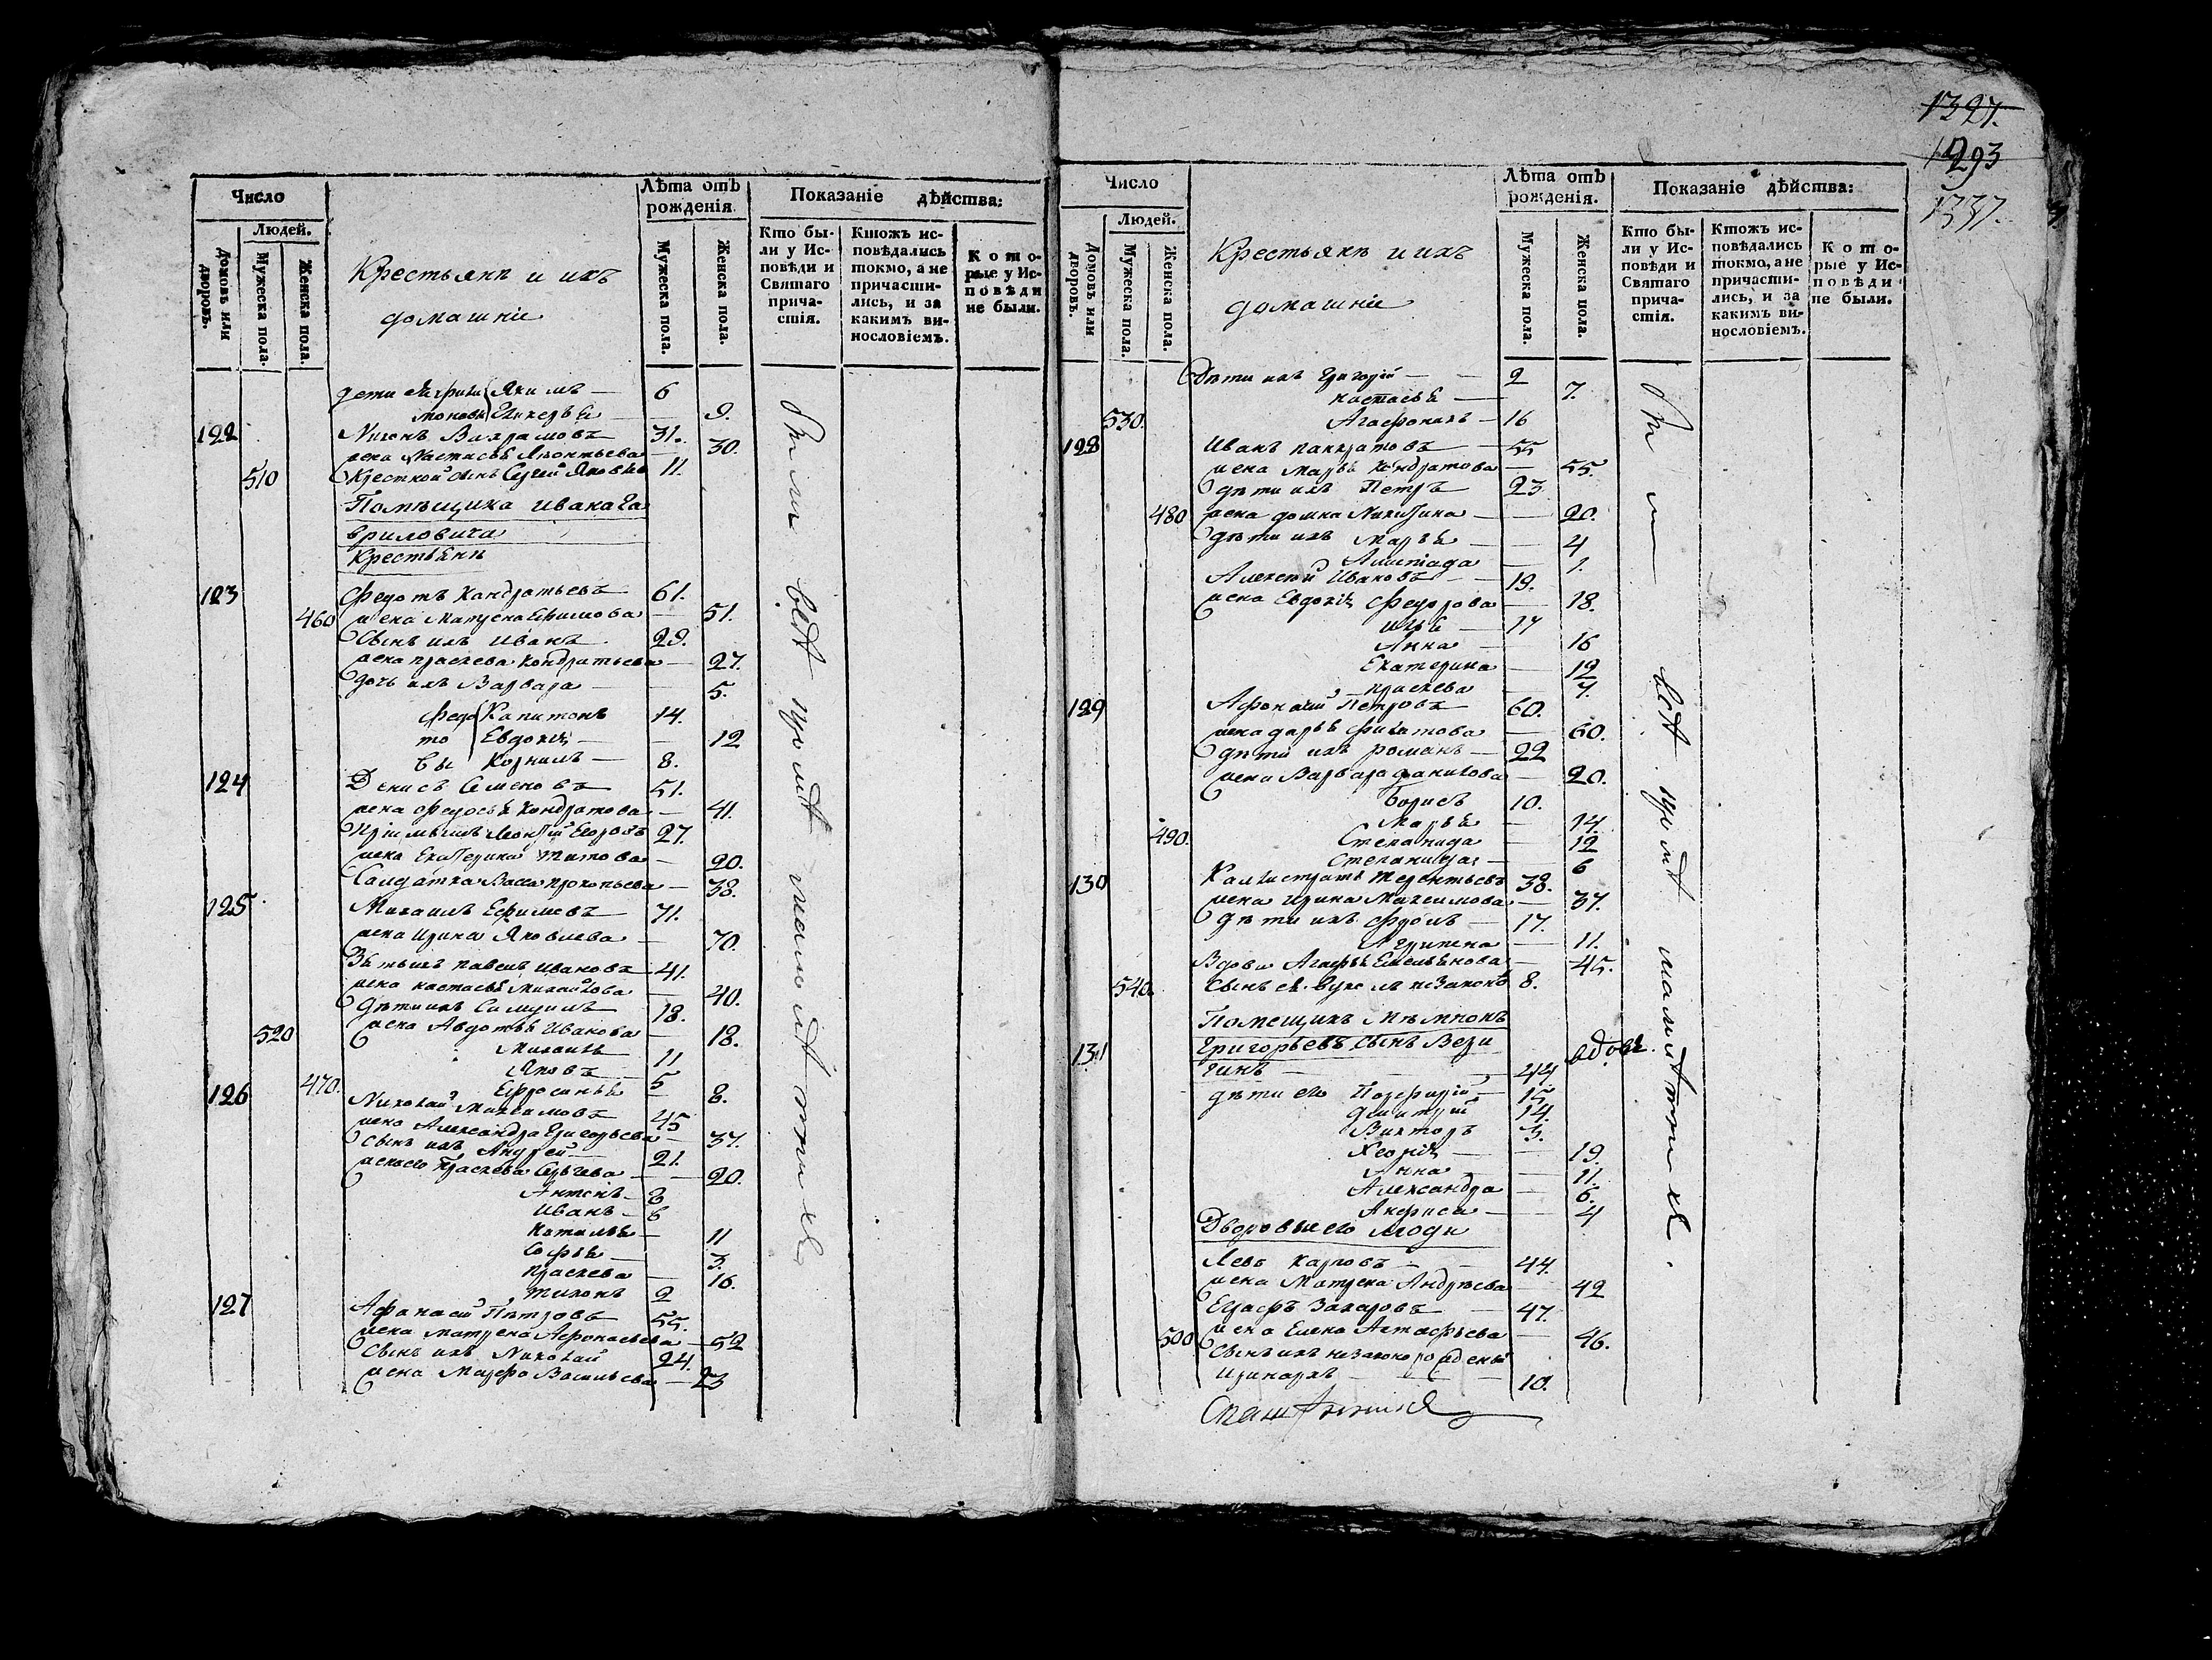 1327.
1293
1337.
Число
Людей.
Домовъ или дворовъ.
Мужеска пола.
Женска пола.
Крестьянѣ и ихъ
домашніе
Лѣта отъ рожденія.
Мужеска пола.
Женска пола.
Показаніе дѣйства:
Кто бы-
ли у Ис-
повѣди и
Святаго
прича-
стія.
Ктожъ ис-
повѣдались
токмо, а не
причасти-
лись, и за
какимъ ви-
нословіемъ.
Кото-
рые у Ис-
повѣди
не были.
дети Якимъ — 6
Гликерья — 9.
122 Никонъ Вахрамовъ 31.
жена Настасья Леонтьева — 30.
510 Крестной сынъ Сергий Яковлевъ 11.
Помѣщика Ивана Га
вриловича
Крестьянѣ
123 Федотъ Кондратьевъ 61.
460 жена Матрена Ефимова — 51.
Сынъ ихъ Иванъ 29.
жена Праскева Кондратьева — 27.
дочь ихъ Варвара — 5.
Федо Капитонъ 14.
то Евдокія — 12
вы Корнилъ — 8.
124 Денисъ Семеновъ 51.
жена Федосья Кондратова — 41.
Пріимышъ Леонтий Егоровъ 27.
жена Екатерина Титова — 20.
Салдатка Васса Прокопьева — 38.
125 Михаилъ Ефимовъ 71.
жена Ирина Яковлева — 70.
Зѣтьихъ Павелъ Ивановъ 41.
жена Настасья Михайлова — 40.
Дѣти ихъ Самуилъ 18.
520 жена Авдотья Иванова — 18.
Михаилъ 11
Яковъ 5
470. Ефросинья — 8.
126 Николай Максимовъ 45
жена Александра Григорьева — 37.
Сынъ ихъ Андрей 21.
жена его Праскева Сергѣева — 20.
Антонъ — 8
Иванъ — 6
Наталья — 11
Софья — 3.
Праскева — 16.
Тихонъ 2
127 Афанасий Пѣтровъ 55.
жена Матрена Афонасьева — 52
Сынъ ихъ Николай 24.
жена Марфа Васильева — 23
Число
Людей.
Домовъ или дворовъ.
Мужеска пола.
Женска пола.
Крестьянѣ и ихъ
домашніе
Лѣта отъ рожденія.
Мужеска пола.
Женска пола.
Показаніе дѣйства:
Кто бы-
ли у Ис-
повѣди и
Святаго
прича-
стія.
Ктожъ ис-
повѣдались
токмо, а не
причасти-
лись, и за
какимъ ви-
нословіемъ.
Кото-
рые у Ис-
повѣди
не были.
Дѣти ихъ Григорий — 2
Настасья — 7.
530. Агафонихъ — 16
128 Иванъ Панкратовъ — 55
жена Марья Кондратова — 55.
Дѣти ихъ Петръ 23
480 жена Домна Никитина — 20.
Дѣти ихъ Марья — 4
— 1.
Алексей Ивановъ — 19.
жена Евдокія Федорова — 18.
Илья — 17
Анна — 16
Екатерина — 12
Праскева — 7.
129 Афонасий Петровъ 60.
жена Дарья Филатова — 60.
Дѣти ихъ Романъ — 22
жена Варвара Данилова — 20.
Борисъ 10.
Марья — 14.
490. Степанида — 12
Степанида — 6
130 Калистратъ Терентьевъ 38.
жена Ирина Максимова — 37.
Дѣти ихъ — 17.
Агрипена — 11.
Вдова Агафья Емельянова — 45.
540. Сынъ ея 8.
Помещикъ
131 Григорьевъ сынъ Вези вдовъ
гинъ — 44
дѣти его Порфирій — 15
Дмитрий 14.
Викторъ 3.
— 19
Анна — 11.
Александра — 6.
— 4
Дворовые его люди
Левъ Карповъ — 44.
жена Матрена Андрѣева — 42
Еграфъ Захаровъ — 47.
500 жена Елена Астафьева — 46.
Сынъ ихъ незаконорожденый
Иринархъ — 10.